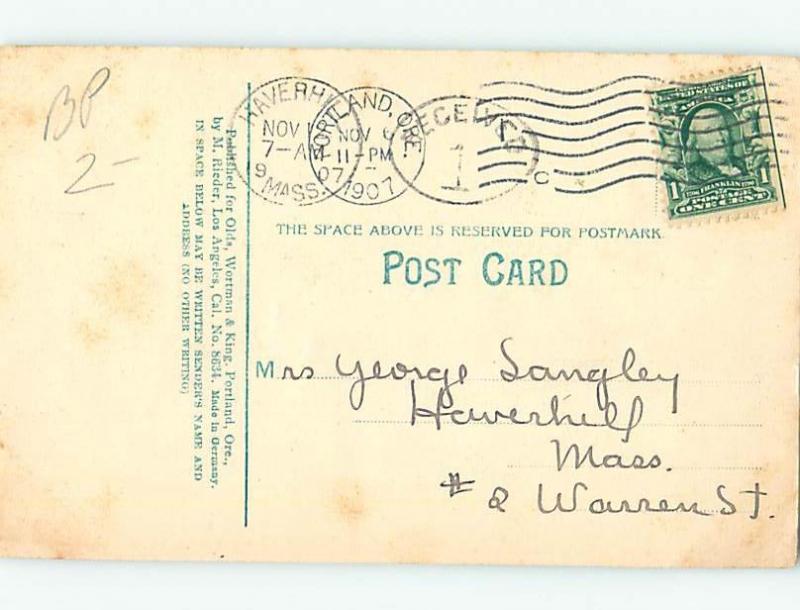 BP
2-
HAVERHILL
NOV 1
7-AM
07
9 MASS.
PORTLAND, ORE.
NOV 6
11-PM
1907
RECEIVED
1
C
UNITED STATES OF
AMERICA
1 FRANKLIN 1
POSTAGE
ONE CENT
THE SPACE ABOVE IS RESERVED FOR POSTMARK
POST CARD
Mrs George Langley
Haverhill
Mass.
# 2 Warren St.
Published for Olds, Wortman & King, Portland, Ore.,
by M. Rieder, Los Angeles, Cal. No. 8634. Made in Germany.
IN SPACE BELOW MAY BE WRITTEN SENDER'S NAME AND
ADDRESS (NO OTHER WRITING)